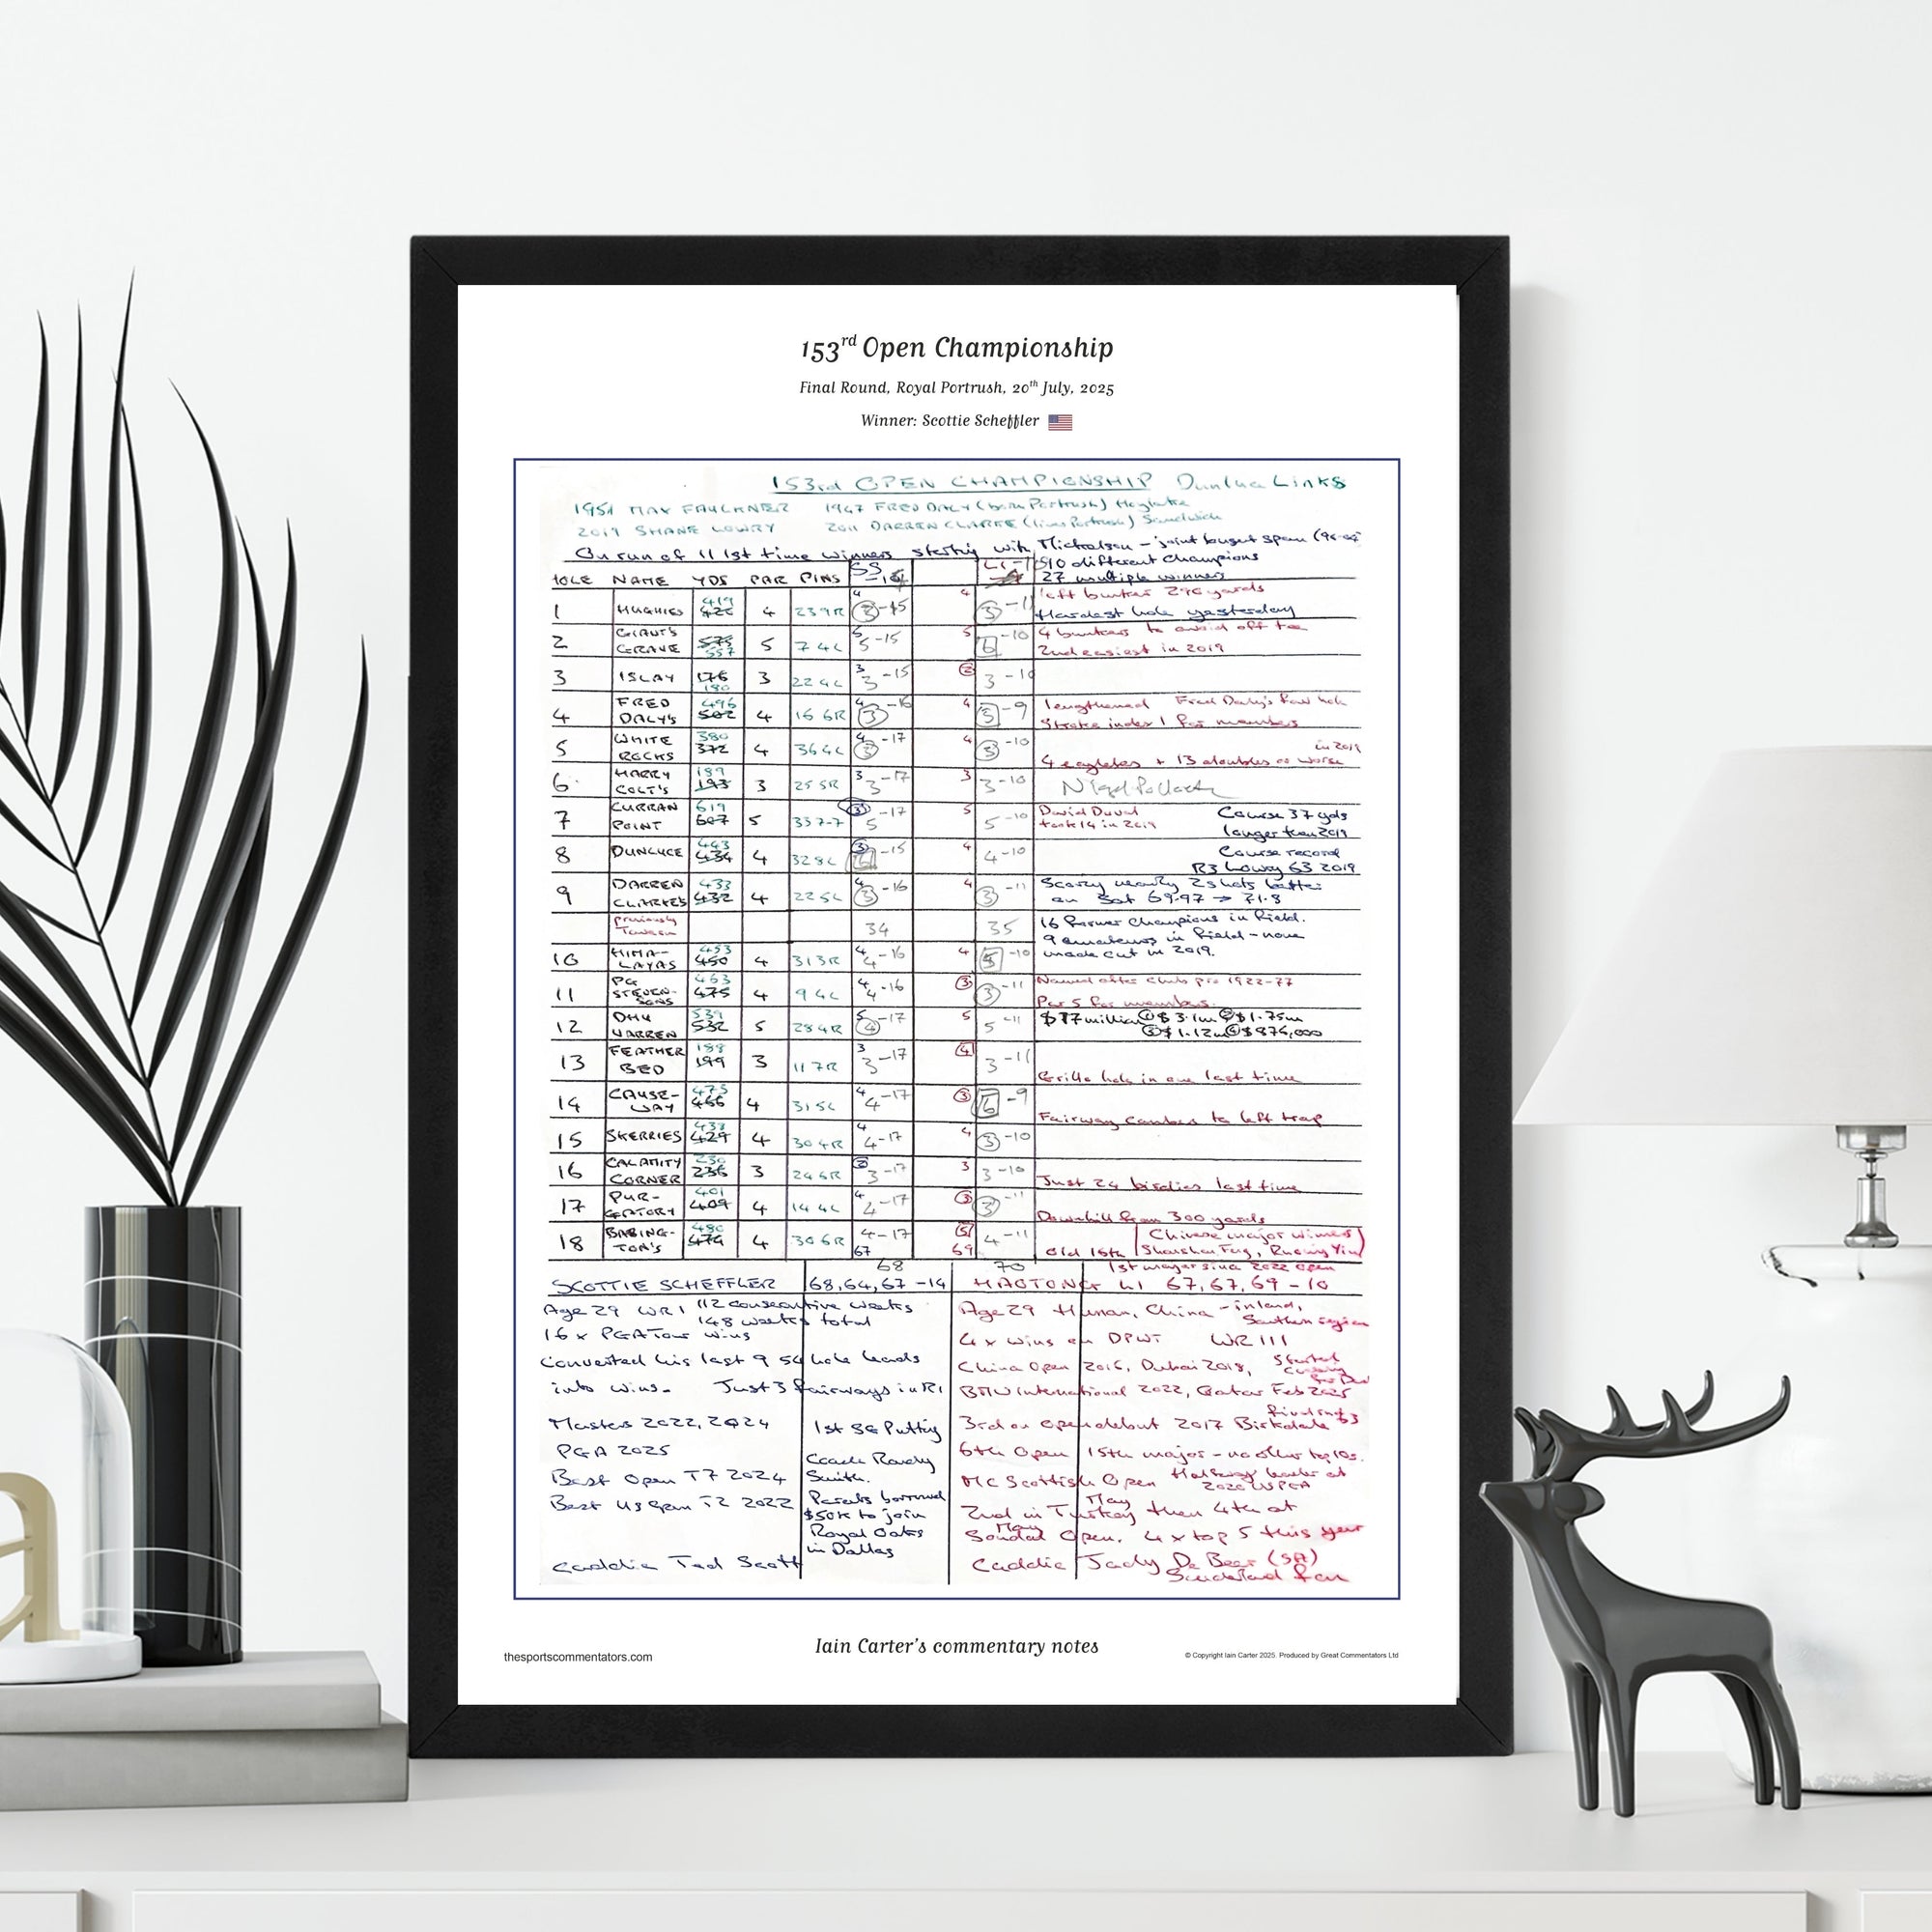 153rd Open Championship
Final Round, Royal Portrush, 20th July, 2025
Winner: Scottie Scheffler
153rd OPEN CHAMPIONSHIP Dunluce Links
1951 MAX FAULKNER 1947 FRED DALY (born Portrush) Hoylake
2019 SHANE LOWRY 2011 DARREN CLARKE (lives Portrush) Sandwich
On run of 11 1st time winners starting with Mickelson - joint longest span
510 different champions
27 multiple winners
HOLE NAME YDS PAR PINS SS LI
1 HUGHIES 419 426 4 239R 4 3 -15 4 3 -11 left bunker 296 yards
Hardest hole yesterday
2 GIANT'S GRAVE 575 557 5 74L 5 5 -15 5 6 -10 4 bunkers to avoid off tee
2nd easiest in 2019
3 ISLAY 176 180 3 224L 3 3 -15 2 3 -10
4 FRED DALY'S 496 502 4 166R 4 3 -16 4 5 -9 lengthened Fred Daly's fav hole
Stroke index 1 for members
5 WHITE ROCKS 380 372 4 364L 4 3 -17 4 3 -10 in 2019
4 eagles + 13 doubles or worse
6 HARRY COLT'S 189 193 3 255R 3 3 -17 3 3 -10
7 CURRAN POINT 619 607 5 337-7 3 5 -17 5 5 -10 David Duval took 14 in 2019
Course 37 yds longer than 2019
8 DUNLUCE 443 434 4 328L 3 6 -15 4 4 -10 Course record
R3 Lowry 63 2019
9 DARREN CLARKE'S 433 432 4 225L 4 3 -16 4 3 -11 Scoring nearly 2 shots better
on Sat 69.97 → 71.8
previously 34 35 16 former champions in field.
9 amateurs in field - none
made cut in 2019.
10 HIMA-LAYAS 453 450 4 313R 4 4 -16 4 5 -10
11 PG STEVEN-SONS 463 475 4 94L 4 4 -16 3 3 -11 Named after club pro 1922-77
Par 5 for members.
12 DHU VARREN 539 532 5 284R 5 4 -17 5 5 -11 $17 million ① $3.1m ② $1.75m
③ $1.12m ④ $876,000
13 FEATHER BED 188 199 3 117R 3 3 -17 4 3 -11 Grillo hole in one last time
14 CAUSE-WAY 473 466 4 315L 4 4 -17 3 6 -9 Fairway cambers to left trap
15 SKERRIES 433 429 4 304R 4 4 -17 4 3 -10
16 CALAMITY CORNER 230 236 3 246R 2 3 -17 3 3 -10 Just 24 birdies last time
17 PUR-GATORY 401 409 4 144L 4 4 -17 3 3 -11 Downhill from 300 yards
18 BABING-TON'S 480 474 4 306R 4 -17 5 4 -11 Chinese major winners
67 69 Old 16th Shanshan Feng, Ruoning Yin
68 70 1st major since 2022 Open
SCOTTIE SCHEFFLER 68,64,67 -14 HAOTONG LI 67,67,69 -10
Age 29 WR1 112 consecutive weeks
148 weeks total
16 x PGA Tour wins
Converted his last 9 54 hole leads
into wins. Just 3 fairways in R1
Masters 2022, 2024
PGA 2025
Best Open T7 2024
Best US Open T2 2022
Caddie Ted Scott
1st SG Putting
Coach Randy
Smith.
Parents borrowed
$50K to join
Royal Oaks
in Dallas
Age 29 Hunan, China - inland,
Southern region
4 x wins on DPWT WR 111
China Open 2016, Dubai 2018, Started
BMW International 2022, Qatar Feb 2025
3rd on Open debut 2017 Birkdale final rnd 63
6th Open 15th major - no other top 10s.
MC Scottish Open Halfway leader at
2020 USPGA
2nd in Turkey May then 4th at
Soudal Open. May 4 x top 5 this year
Caddie Jady De Beer (SA)
Sunderland fan
Iain Carter's commentary notes
thesportscommentators.com
© Copyright Iain Carter 2025. Produced by Great Commentators Ltd